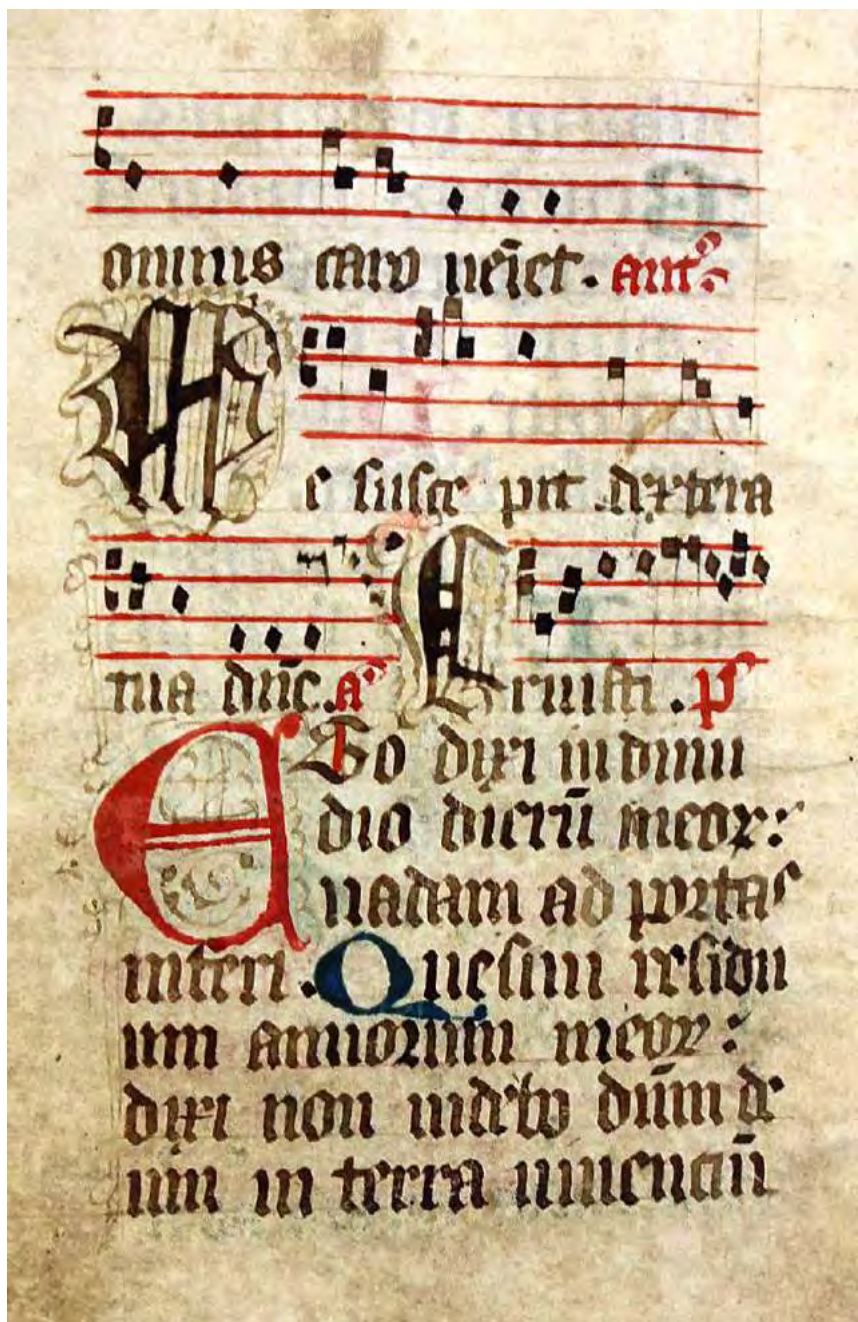 omnis caro uēiet. ant
Me susce pit dextera
tua dn̄e. a Eruisti. p
EGo dixi in dimi
dio dierū meoꝝ:
uadam ad portas
inferi. Quesiui residu
um annorum meoꝝ:
dixi non uidebo dūm de
um in terra uiuenciū